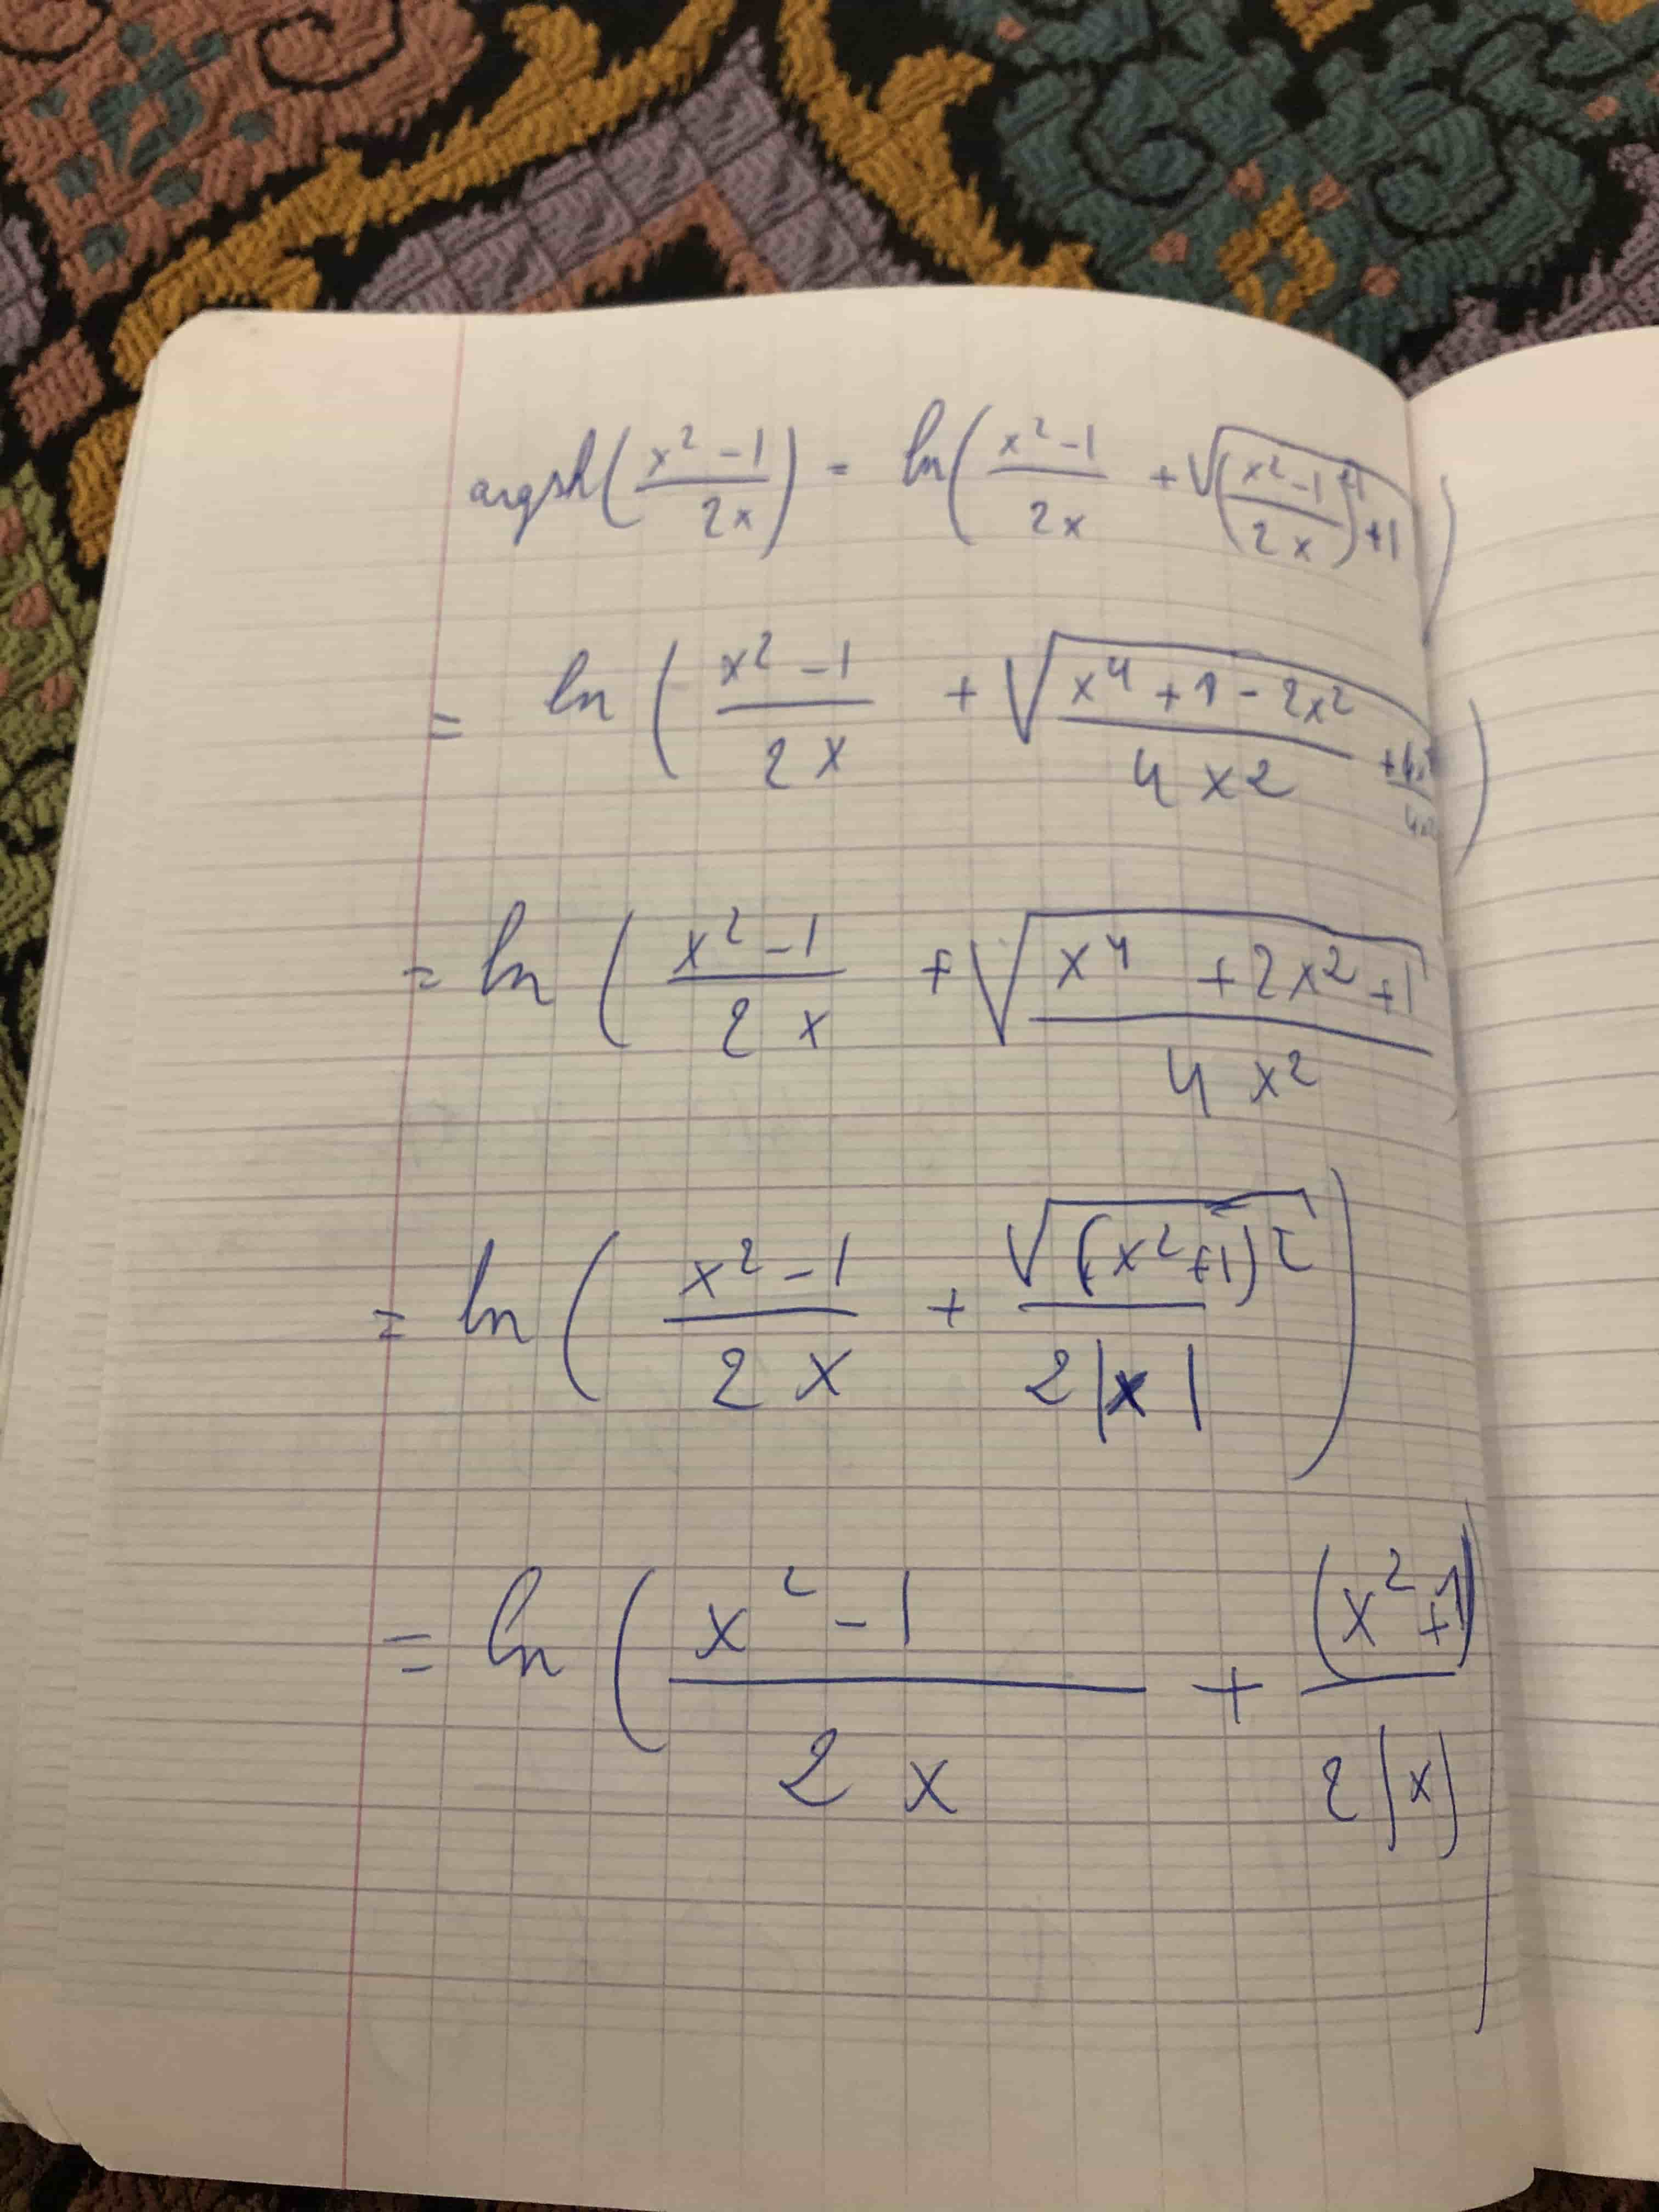 argsh((x² - 1)/(2x)) = ln((x² - 1)/(2x) + √(((x² - 1)/(2x))² + 1))
= ln((x² - 1)/(2x) + √((x⁴ + 1 - 2x²)/(4x2) + 4x²/4x²))
= ln((x² - 1)/(2x) + √((x⁴ + 2x² + 1)/(4x²))
= ln((x² - 1)/(2x) + √((x² + 1)²)/(2|x|))
= ln((x² - 1)/(2x) + (x² + 1)/(2|x|))